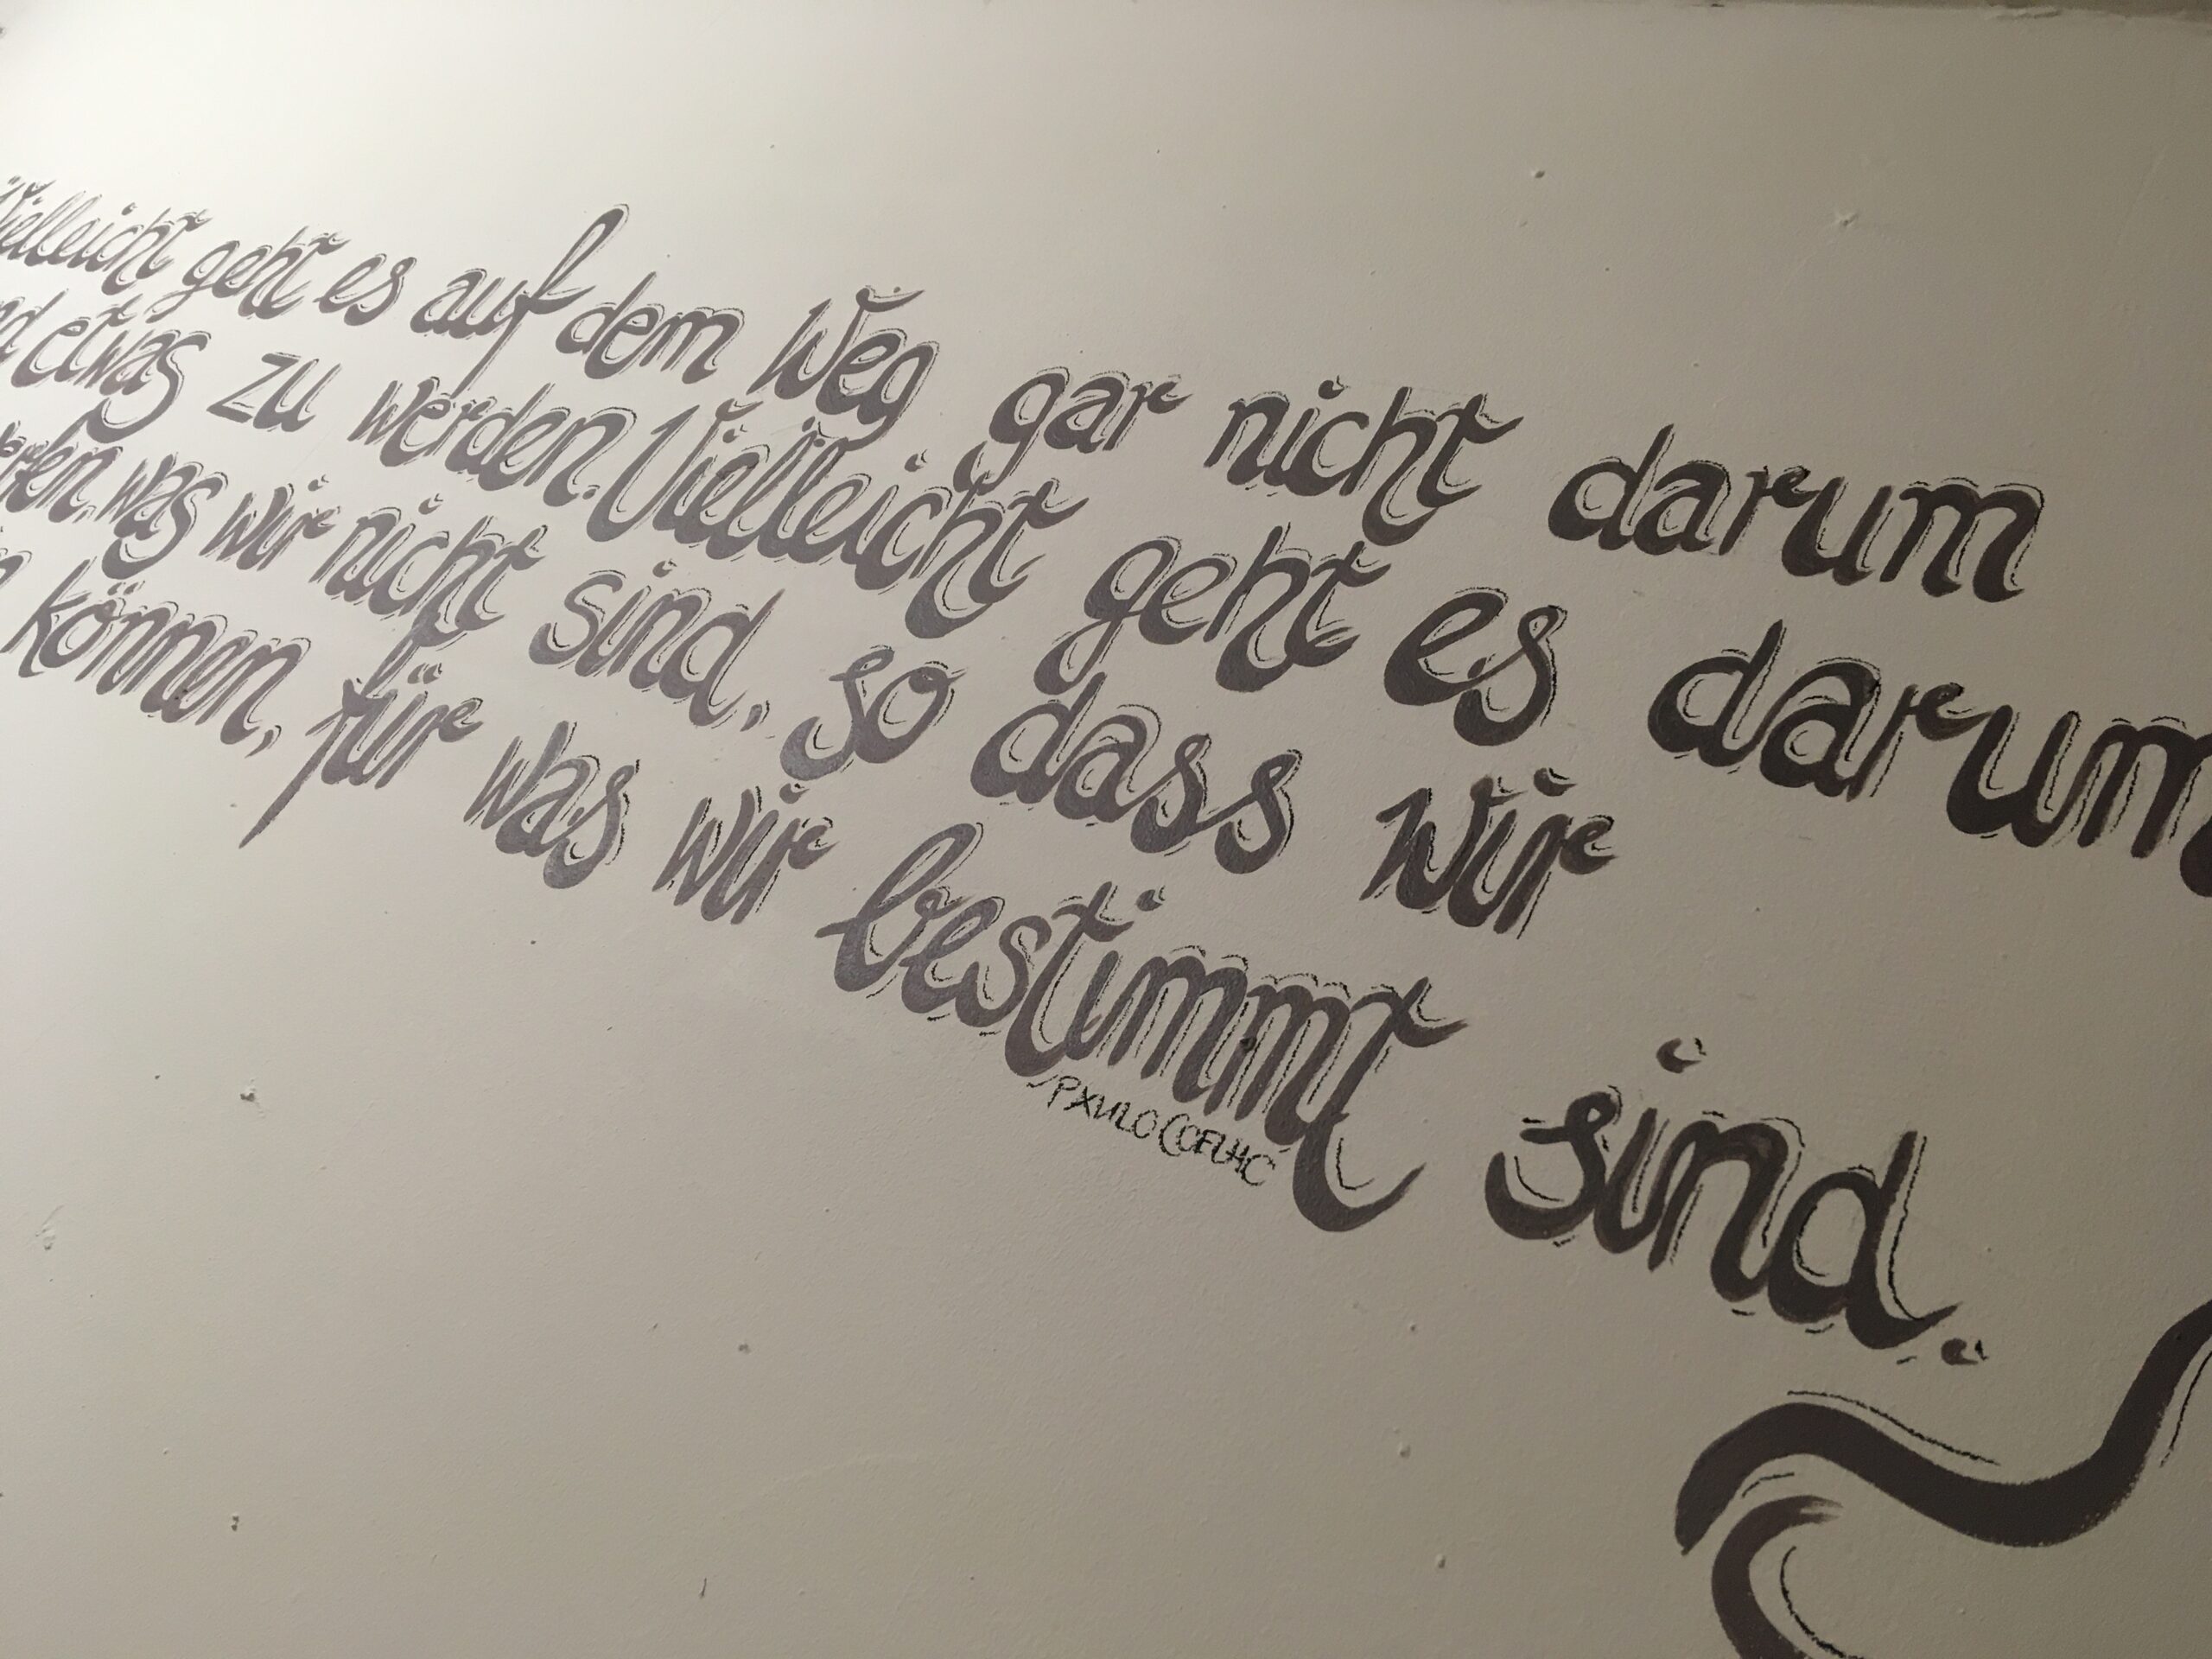 Vielleicht geht es auf dem Weg gar nicht darum
etwas zu werden. Vielleicht geht es darum,
was wir nicht sind, so dass wir
können, für was wir bestimmt sind.
PAULO COELHO